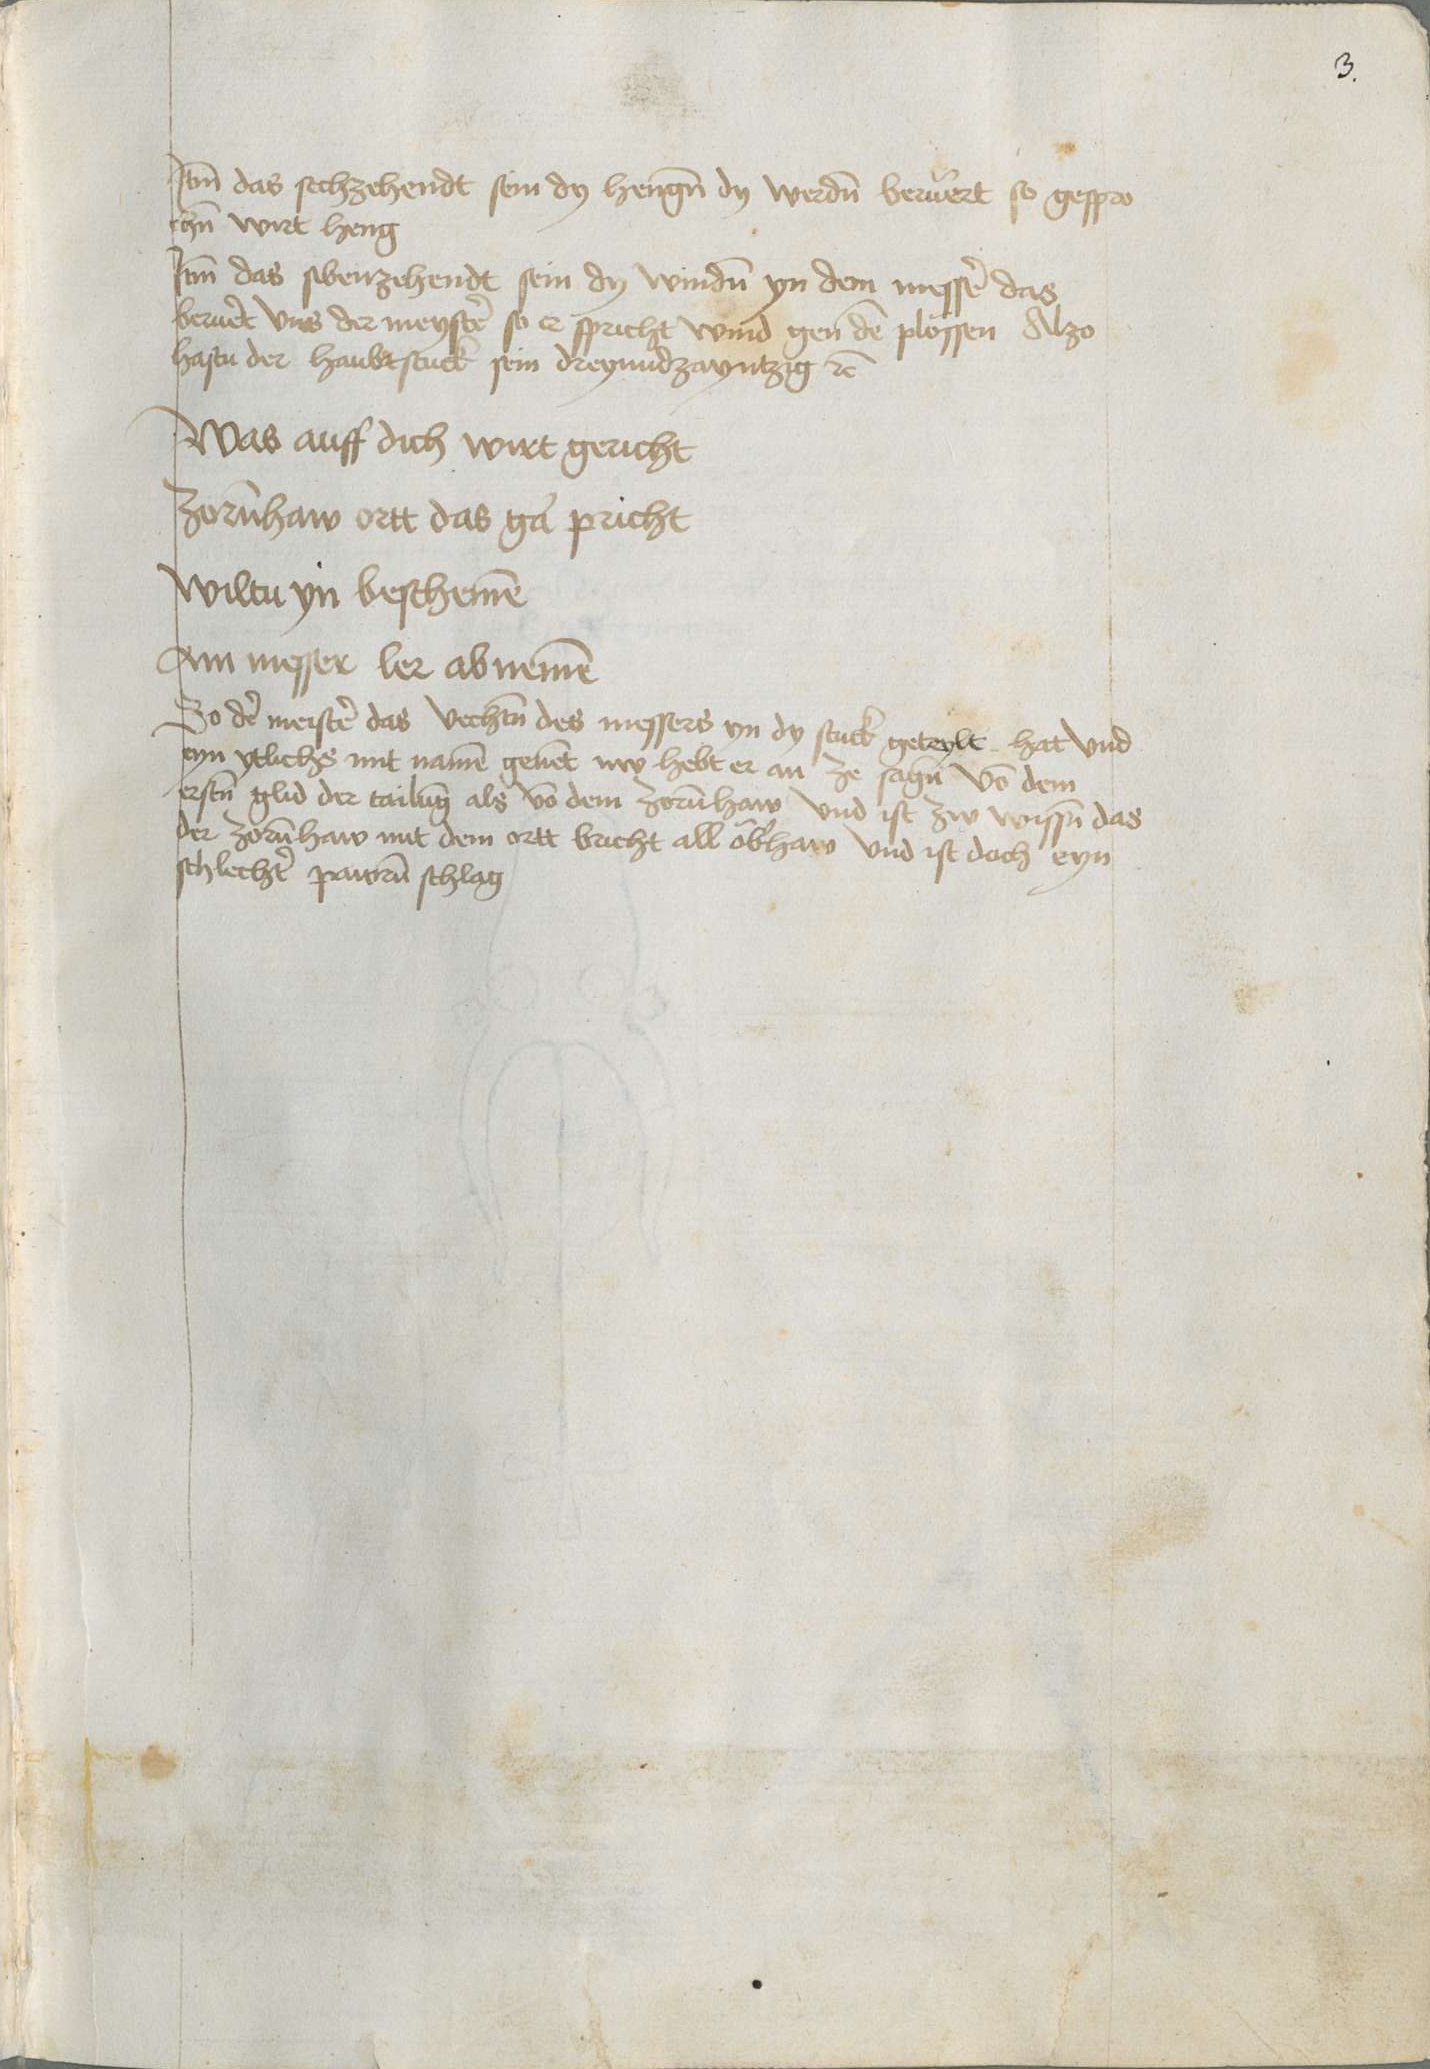 3.
Itm̄ das sechzehendt sein dy hengn̄ dy werdn̄ berüert so gespro
chn̄ wirt heng
Itm̄ das sibenzehendt sein dy windn̄ yn dem messe᷑ das
berue᷑t vns der meyste᷑ so er spricht wind gen de᷑ plössen Alzo
hastu der haubtstuck sein dreyundzwyntzig ꝛc̄
Was auff dich wirt gericht
Zorn̄haw ortt das gā pricht
Wiltu yn beschemē
Am messer ler abnemē
So de᷑ meiste᷑ das vechtn̄ des messers yn dy stuck geteylt hat vnd
eyn ytlichs mit namē genēt nw hebt er an ze sagn̄ vō dem
erstn̄ glid der tailūg als vō dem Zorn̄haw vnd ist zw wissn̄ das
der zorn̄haw mit dem ortt bricht all öb᷑haw vnd ist doch eyn
schlechte᷑ pawrn̄ schlag